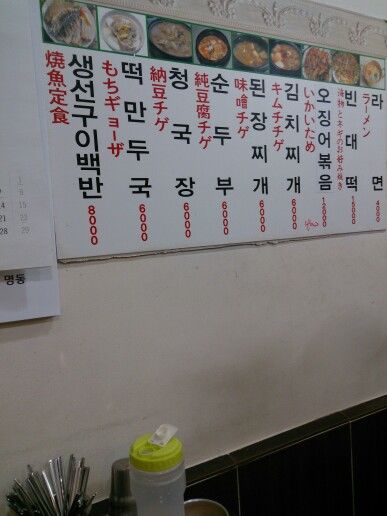 燒魚定食
생선구이백반
8000
もちギョーザ
떡만두국
6000
納豆チゲ
청국장
6000
純豆腐チゲ
순두부
6000
味噌チゲ
된장찌개
6000
キムチチゲ
김치찌개
6000
いかいため
오징어볶음
12000
海物とネギのお好み焼き
빈대떡
15000
ラーメン
라면
4000
명동